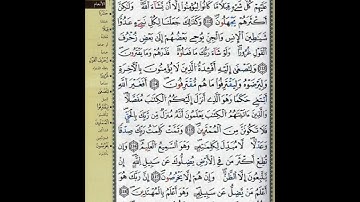 عَلَيْهِمْ كُلَّ شَيْءٍ قُبُلًا مَّا كَانُوا لِيُؤْمِنُوا إِلَّا أَن يَشَاءَ اللَّهُ وَلَٰكِنَّ
أَكْثَرَهُمْ يَجْهَلُونَ ۝ وَكَذَٰلِكَ جَعَلْنَا لِكُلِّ نَبِيٍّ عَدُوًّا
شَيَاطِينَ الْإِنسِ وَالْجِنِّ يُوحِي بَعْضُهُمْ إِلَىٰ بَعْضٍ زُخْرُفَ
الْقَوْلِ غُرُورًا وَلَوْ شَاءَ رَبُّكَ مَا فَعَلُوهُ فَذَرْهُمْ وَمَا يَفْتَرُونَ
۝ وَلِتَصْغَىٰ إِلَيْهِ أَفْئِدَةُ الَّذِينَ لَا يُؤْمِنُونَ بِالْآخِرَةِ
وَلِيَرْضَوْهُ وَلِيَقْتَرِفُوا مَا هُم مُّقْتَرِفُونَ ۝ أَفَغَيْرَ اللَّهِ
أَبْتَغِي حَكَمًا وَهُوَ الَّذِي أَنزَلَ إِلَيْكُمُ الْكِتَابَ مُفَصَّلًا
وَالَّذِينَ آتَيْنَاهُمُ الْكِتَابَ يَعْلَمُونَ أَنَّهُ مُنَزَّلٌ مِّن رَّبِّكَ بِالْحَقِّ
فَلَا تَكُونَنَّ مِنَ الْمُمْتَرِينَ ۝ وَتَمَّتْ كَلِمَتُ رَبِّكَ صِدْقًا
وَعَدْلًا لَّا مُبَدِّلَ لِكَلِمَاتِهِ وَهُوَ السَّمِيعُ الْعَلِيمُ ۝ وَإِن
تُطِعْ أَكْثَرَ مَن فِي الْأَرْضِ يُضِلُّوكَ عَن سَبِيلِ اللَّهِ إِن
يَتَّبِعُونَ إِلَّا الظَّنَّ وَإِنْ هُمْ إِلَّا يَخْرُصُونَ ۝ إِنَّ رَبَّكَ هُوَ
أَعْلَمُ مَن يَضِلُّ عَن سَبِيلِهِ وَهُوَ أَعْلَمُ بِالْمُهْتَدِينَ ۝